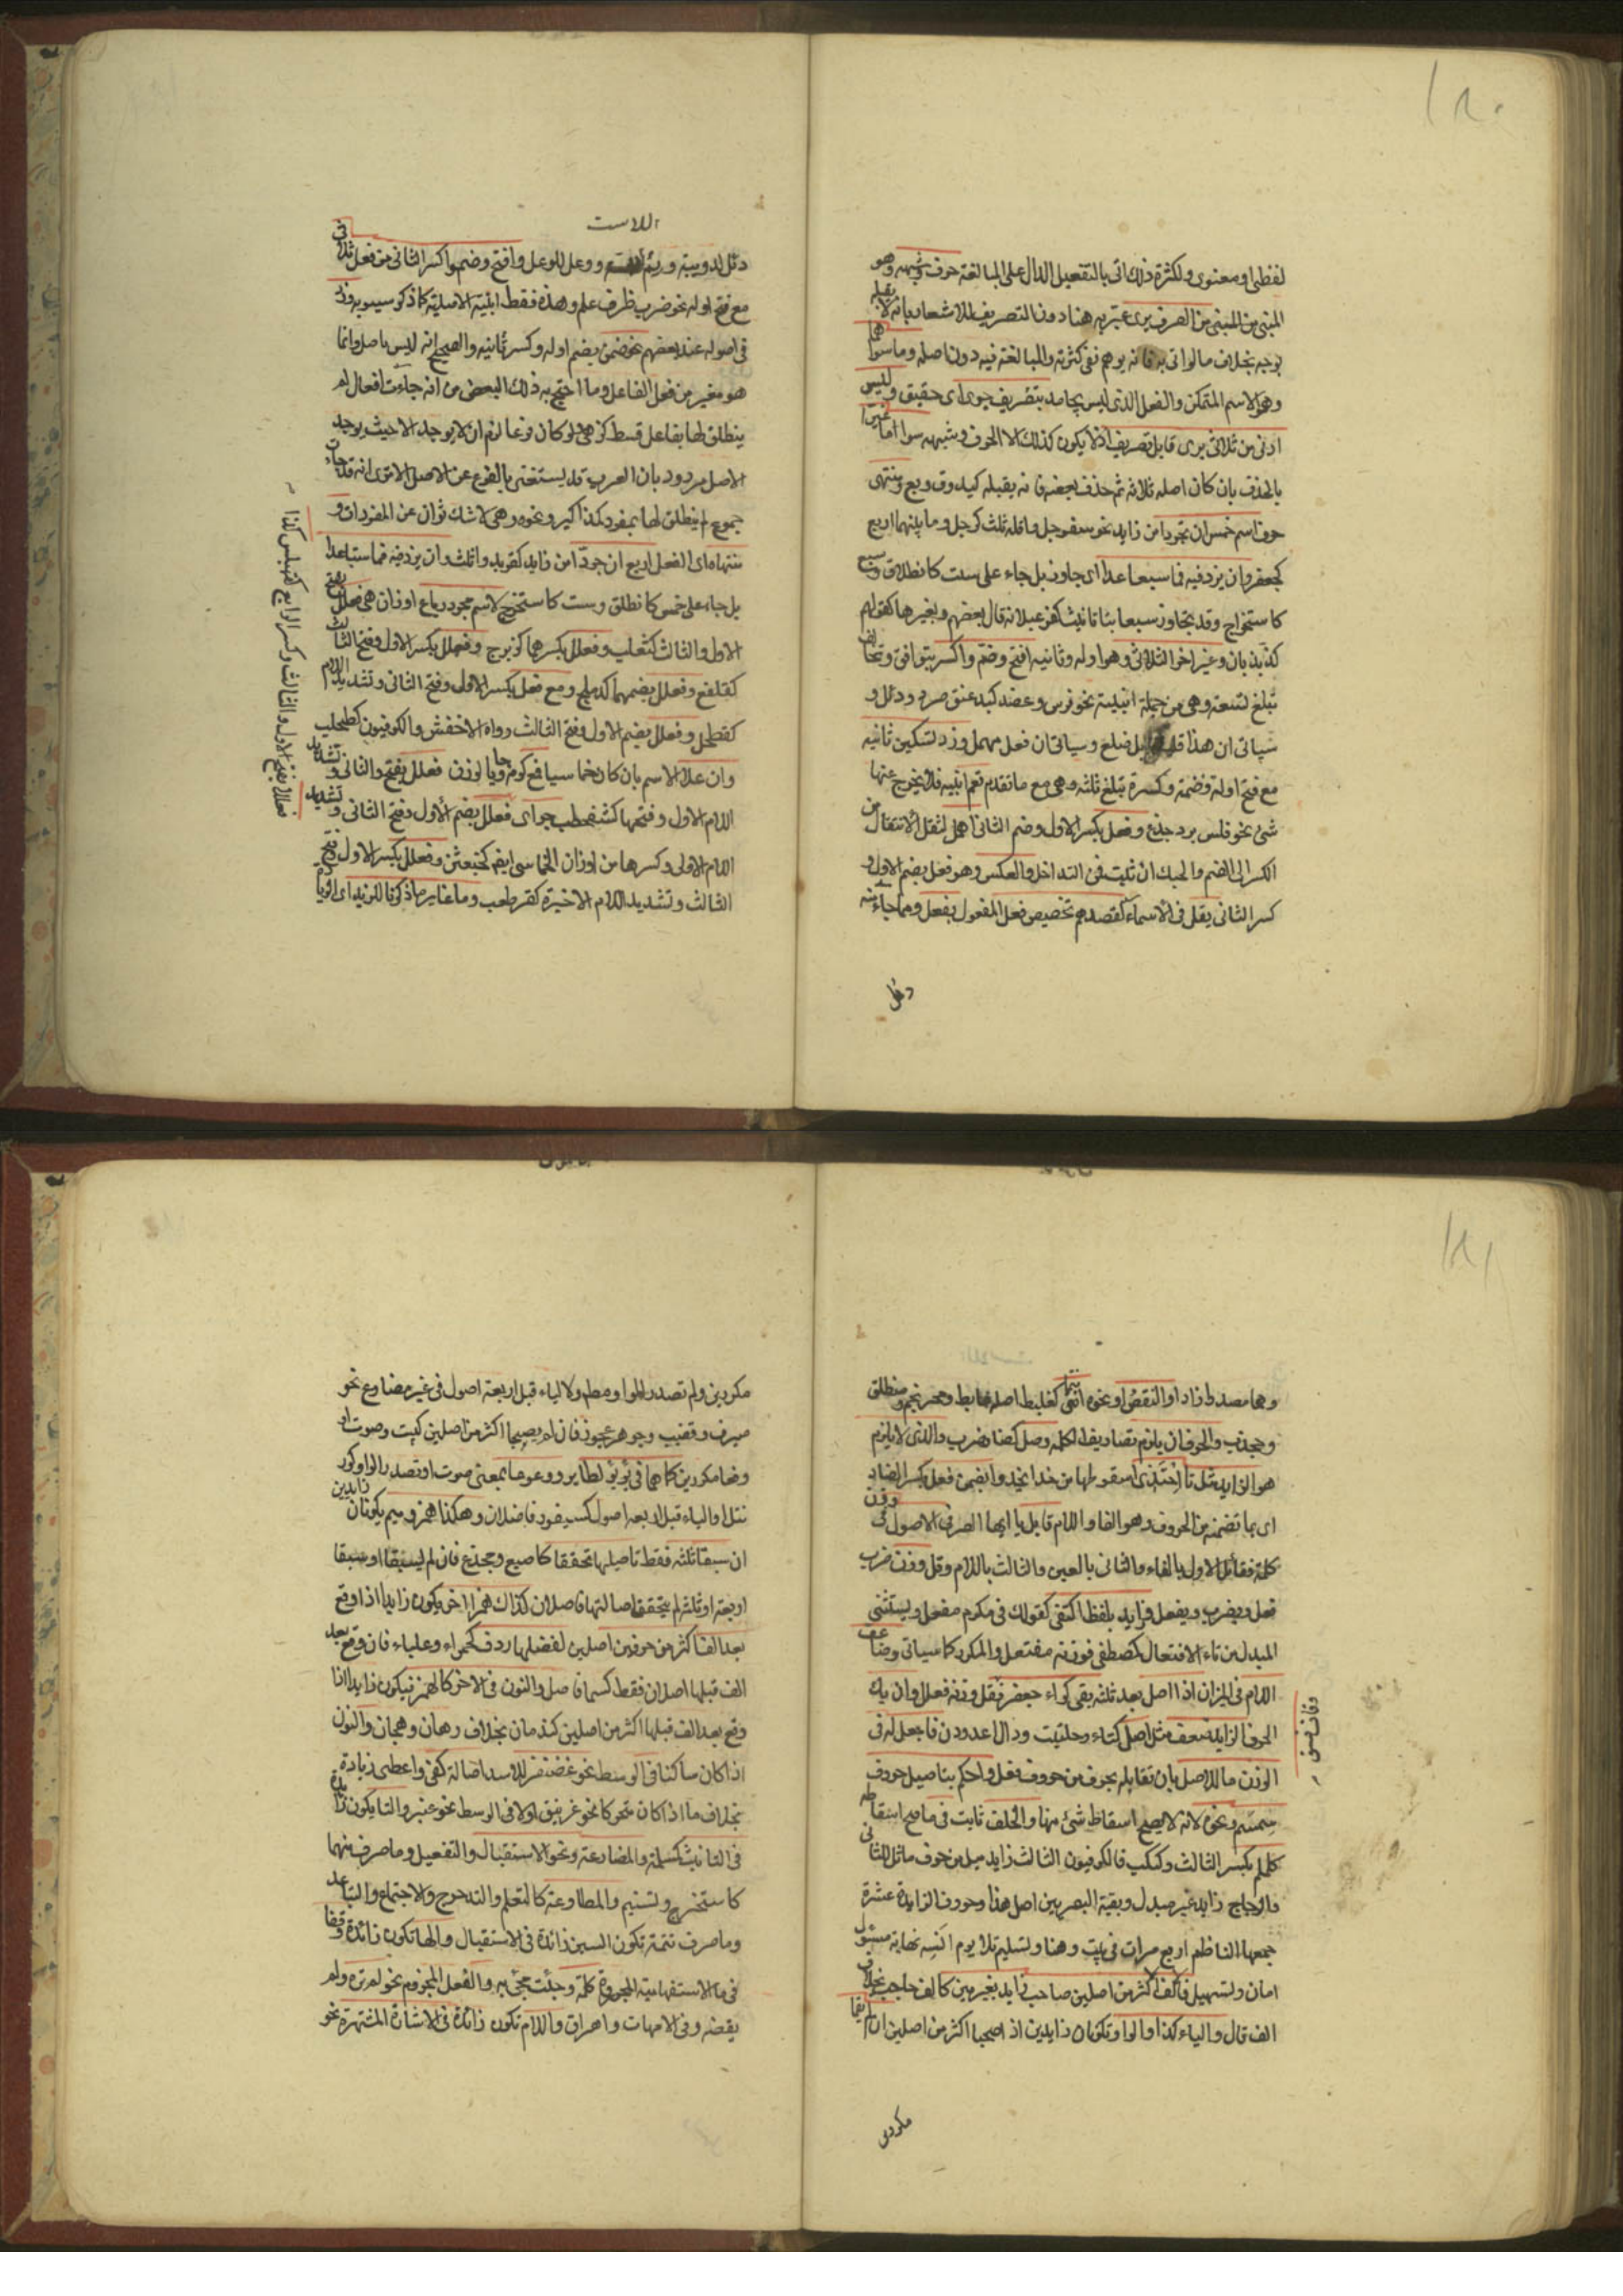 ١٨٠
لفظي او معنوى ولكثرة ذلك اتى بالتفعيل الدال على المبالغة حرف وشبهه وهو
المبنى من المبنى من الصرف برى عبّر به هنا دون التصريف للاشعار بانه لا يقبله
بوجه بخلاف ما لو اتى به فانه يوهم نفى كثرته والمبالغة فيه دون اصله وما سواهما
وهو الاسم المتمكن والفعل الذى ليس بجامد بتصريف حرى اى حقيق وليس
ادنى من ثلاثى يرى قابل تصريف اذ لا يكون كذلك الا الحرف وشبهه سوا ما غيرا
بالحذف بان كان اصله ثلاثة ثم حذف بعضه فانه يقبله كيد وق وبع ومنتهى
حرف اسم خمس ان تجردا من زايد نحو سفرجل واقله ثلث كرجل وما بينهما اربع
كجعفر وان يزد فيه فما سبعا عدا اى جاوز بل جاء على ست كانطلاق وسبع
كاستخراج وقد يتجاوز سبعا بتا تانيث كقرعبلانه قال بعضهم وبغيرها كقولهم
كذبذبان وغير اخر الثلاثى وهو اوله وثانيه افتح وضم واكسر بتوافق وتخالف
تبلغ تسعة وهى من جملة ابنيته نحو فرس وعضد كبد عنق صرد ودئل و
سياتى ان هذا قليل ابل ضلع وسياتى ان فعل مهمل وزد تسكين ثانيه
مع فتح اوله وضمه وكسره تبلغ ثلثة وهى مع ما تقدم تعم ابنيه فلا يخرج عنها
شئ نحو فلس برد جذع وفعل بكسر الاول وضم الثانى اهمل لثقل الانتقال من
الكسر الى الضم والحبك ان ثبت فمن التداخل والعكس وهو فعل بضم الاول و
كسر الثانى يقل فى الاسماء لقصدهم تخصيص فعل المفعول بفعل ومما جاء منه
دئل
اللاست
دئل لدويبة ورئم ووعل للوعل وافتح وضم واكسر الثانى من فعل ثلاثى
مع فتح اوله نحو ضرب ظرف علم وهذه فقط ابنيته الاصلية كما ذكر سيبويه وزد
فى اصوله عند بعضهم نحو ضمن بضم اوله وكسر ثانيه والصحيح انه ليس باصل وانما
هو مغير من فعل الفاعل وما احتج به ذلك البعض من انه جاءت افعال لم
ينطلق لها بفاعل قسط كزهى ولو كان فرعا لزم ان لا يوجد الا حيث يوجد
الاصل مردود بان العرب قد يستغنى بالفرع عن الاصل الا ترى انه قد جات
جموع لم ينطلق لها بمفرد كمذاكير ونحوه وهى لا شك ثوان عن المفردات و
منتهاه اى الفعل اربع ان جردّا من زايد كقربد واثلث وان يزد فيه فما ستا عدا
بل جاء على خمس كانطلق وست كاستخرج لاسم مجرد رباع اوزان هى فعلل بفتح
الاول والثالث كثعلب وفعلل بكسرهما كزبرج وفعلل بكسر الاول وفتح الثالث
كقلفع وفعلل بضمهما كدملج ومع فعل بكسر الاول وفتح الثانى وتشديد اللام
كقطحل وفعلل بضم الاول وفتح الثالث رواه الاخفش والكوفيون كطحلب
وان علا الاسم بان كان خماسيا فمع كونه حاويا لوزن فعلل بفتح والثانى وتشديد
اللام الاول وفتحها كشقحطب حوى فعلل بضم الأول وفتح الثانى وتشديد
اللام الاولى وكسرها من اوزان الخماسى ايضم كخبعثن وفعلل بكسر الاول وفتح
الثالث وتشديد اللام الاخيرة كقرطعب وما غاير ما ذكرنا للزيد اى الزيادة
فعلل بفتح الاول والثالث وكسر الرابع كقهبلس كذا
١٨١
وهما مصدرا زاد او النقص او نحوه انتمى كعلبط اصله علابط ومحرنجم ومنطلق
وجخدب والحرف ان يلزم تصاريف الكلمة وصل كضاد ضرب والذى لا يلزم
هو الزايد مثل تا احتذى لسقوطها من حذا يحذوا بضمن فعل بكسر الضاد
اى بما تضمنه من الحروف وهو الفا واللام قابل يا ايها الصرفى الاصول فى وزن
كلمة فقابل الاول بالفاء والثانى بالعين والثالث باللام وقل وزن ضرب
فعل ويضرب يفعل وزايد بلفظ اكتفى كقولك فى مكرم مفعل ويستثنى
المبدل من تاء الافتعال كمصطفى فوزنه مفتعل والمكرر كما سياتى وضاعف
اللام فى الميزان اذا اصل بعد ثلثة بقى كراء جعفر فقل وزنه فعلل وان يك
الحرف الزايد ضعف مثل اصل كتاء وحلتيت ودال اغدودن فاجعل له فى
الوزن ما للاصل بان تقابله بحرف من حروف فعل واحكم بتاصيل حروف
سمسم ونحوه لانه لا يصح اسقاط شئ منها والخلف ثابت فى ما صح اسقاطه
كلملم بكسر الثالث وكبكب فالكوفيون الثالث زايد مبدل من حرف مماثل للثانى
والزجاج زايد غير مبدل وبقية البصريين اصل هذا وحروف الزايدة عشرة
جمعها الناظم اربع مرات فى بيت وهنا وتسليم تلا يوم انسه نهاية مسئول
امان وتسهيل فالف اكثر من اصلين صاحب زايد بغير مين كالف حاجب بخلاف
الف قال والياء كذا والواو وتكونان زايدين اذ اصحبا اكثر من اصلين ان لم يقعا
مكررين
مكررين ولم تصدر الواو مطلقا ولا الياء قبل اربعة اصول فى غير مضارع نحو
صيرف وقضيب وجوهر عجوز فان لم يصحبا اكثر من اصلين كبيت وصوت او
وقعا مكررين كما هما فى يؤيؤ لطاير ووعوعا بمعنى صوت او تصدر الواو كور
نتل او الياء قبل اربعة اصول كسيفود فاصلان وهكذا همز وميم يكونان زايدين
ان سبقا ثلثة فقط تاصيلها تحققا كاصبع ومجذع فان لم يسبقا او سبقا
اربعة او ثلثة لم يتحقق اصالتها فاصلان كذاك همز اخر يكون زايدا اذا وقع
بعد الف اكثر من حرفين اصلين لفظها ردف كحمراء وعلباء فان وقع بعد
الف قبلها اصلان فقط كسما فاصل والنون فى الاخر كالهمز فيكون زايدا اذا
وقع بعد الف قبلها اكثر من اصلين كندمان بخلاف رهان وهجان والنون
اذا كان ساكنا فى الوسط نحو غضنفر للاسد اصالة كفى واعطى زيادة
بخلاف ما اذا كان متحركا نحو غرنيق او لا فى الوسط نحو عنبر والتا يكون زايدة
فى التانيث كمسلمة والمضارعة ونحو الاستقبال والتفعيل وما صرف منهما
كاستخرج وتسنيم والمطاوعة كالتعلم والتدحرج والاجتماع والتباعد
وما صرف تتمة تكون السين زائدة فى الاستقبال والها تكون زائدة وقفا
فى ما الاستفهامية المجرورة كلمه وجئت مجئ مه والفعل المجزوم نحو لم تره ولم
يقضه وفى الامهات واهراق واللام تكون زائدة فى الاشارة المشتهرة نحو